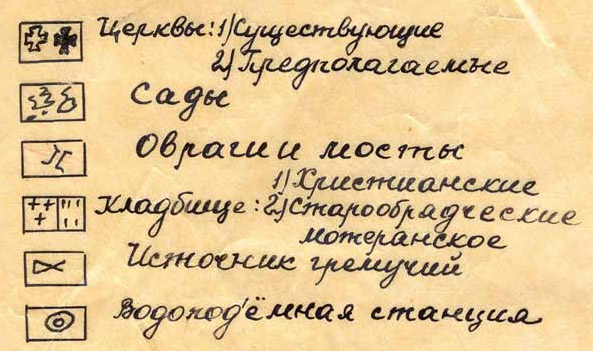 Церквы: 1) Существующие
2) Предполагаемые
Сады
Овраги и мосты
1) Христианские
Кладбище: 2) Старообрадческие
лютеранское
Источник гремучий
Водопод'ёмная станция